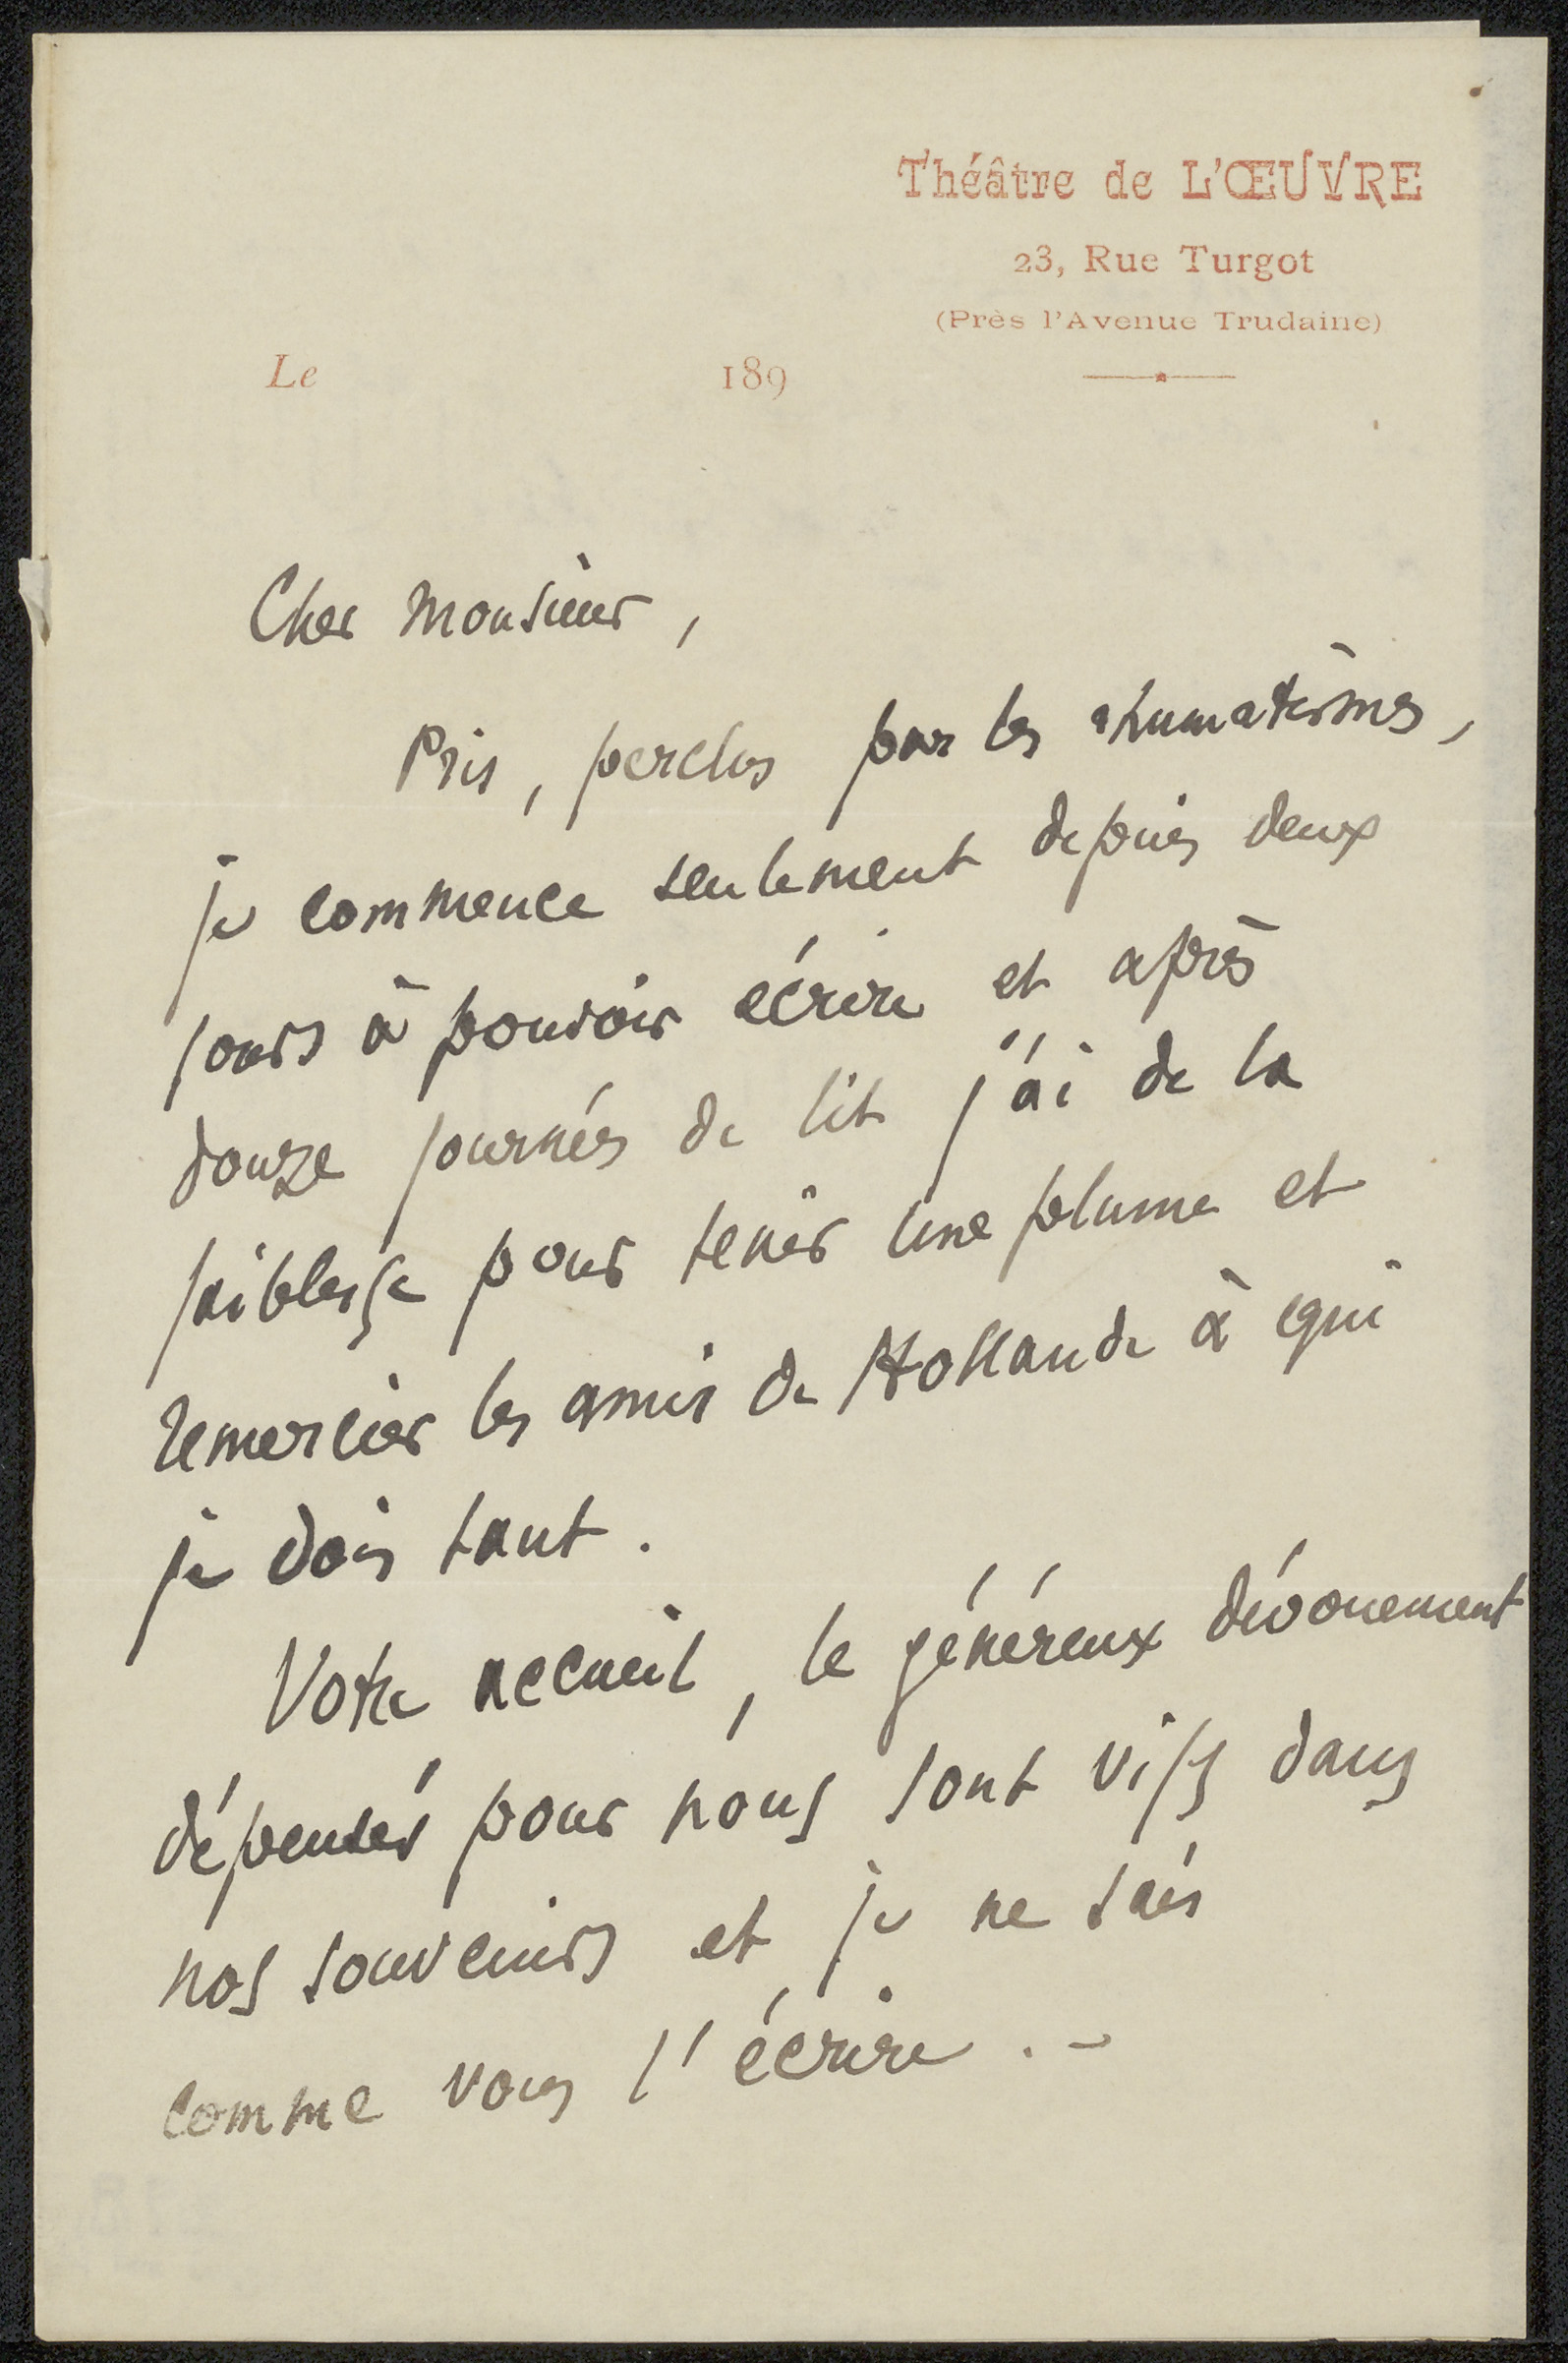 Théâtre de L'ŒUVRE
23, Rue Turgot
(Près l'Avenue Trudaine)
Le 189
Cher Monsieur,
Pris, perclus par les rhumatismes,
je commence seulement depuis deux
jours à pouvoir écrire et après
douze journées de lit j'ai de la
faiblesse pour tenir une plume et
remercier les amis de Hollande à qui
je dois tant.
Votre accueil, le généreux dévouement
dépensés pour nous sont vifs dans
nos souvenirs et je ne sais
comme vous l'écrire. -